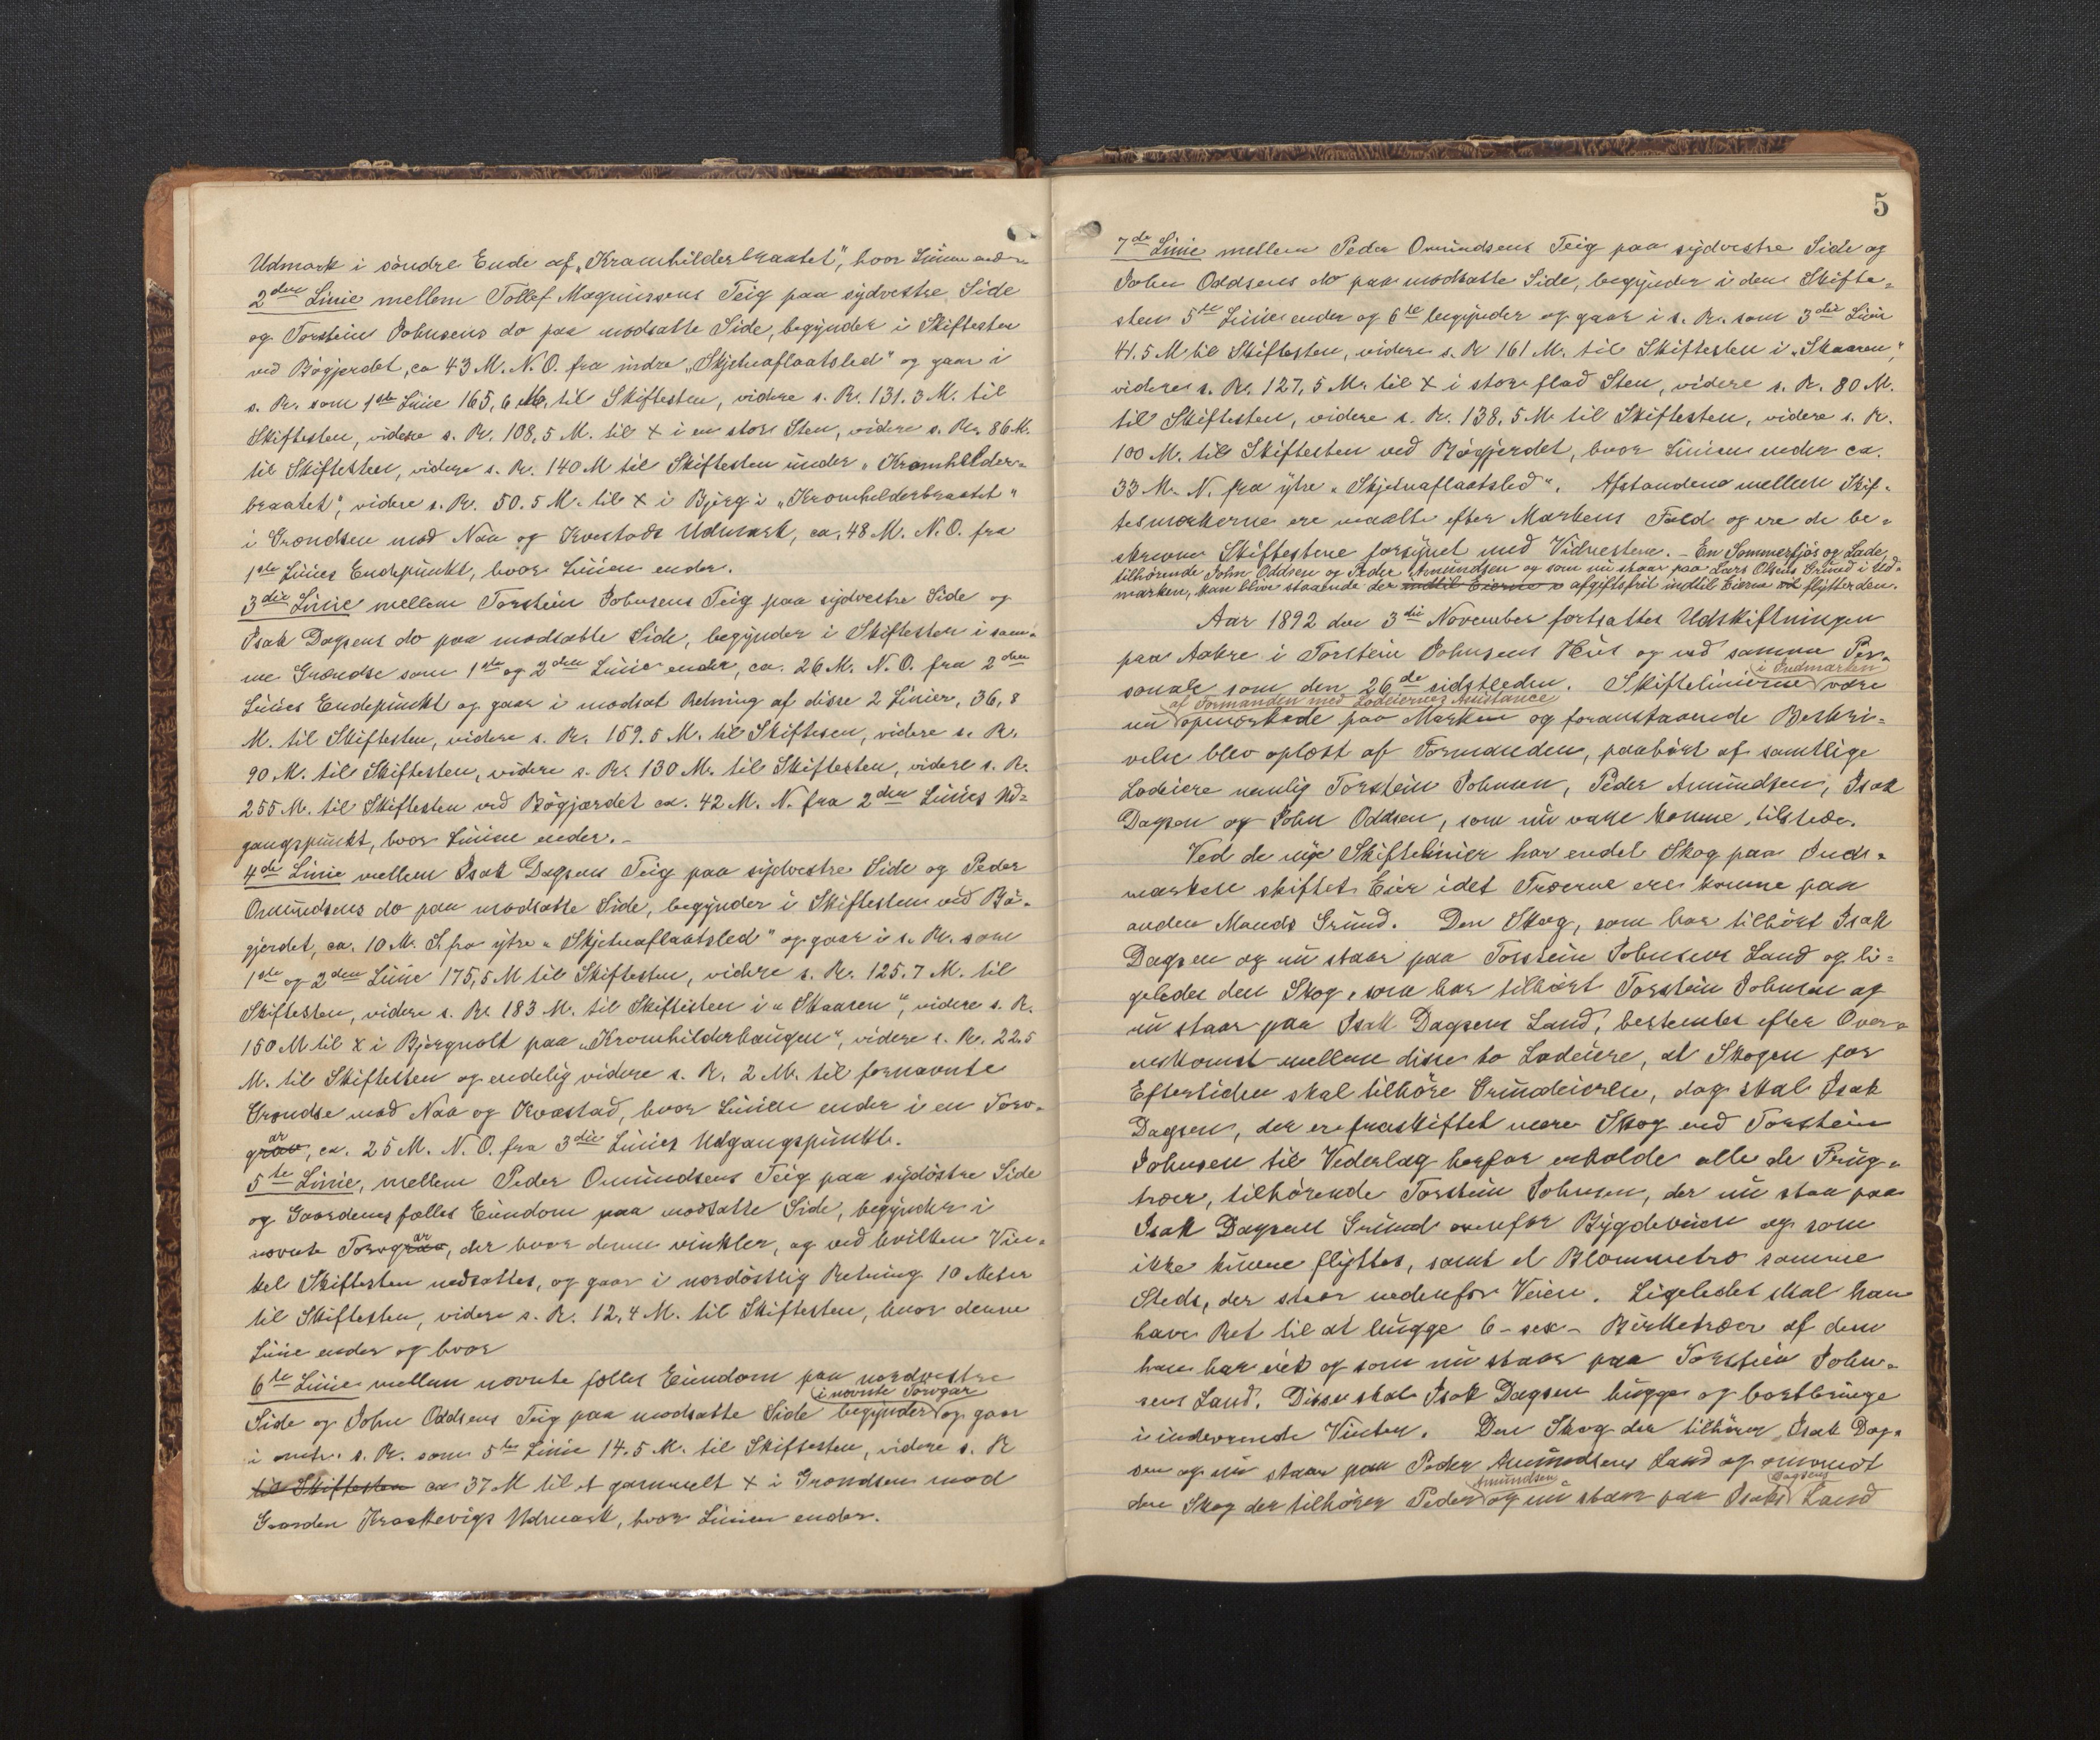 Udmark i söndre Ende af „Kramhilderbraatet", hvor Linien ender
2den Linie mellem Tollef Magnussens Teig paa sydvestre Side
og Torstein Johnsens do paa modsatte Side, begynder i Skiftesten
ved Bögjerdet, ca 43 M. N.O. fra indre „Skjetnaflaatsled" og gaar i
s. R. som 1ste Linie 165,6 M. til Skiftesten, videre s. R. 131.3 M. til
Skiftesten, videre s. R. 108,5 M. til x i en stor Sten, videre s. R. 86 M.
til Skiftesten, videre s. R. 140 M til Skiftesten under „Kramhilder-
braatet", videre s. R. 50.5 M. til x i Bjerg i „Kramhilderbraatet"
i Grændsen mod Naa og Kvestads Udmark, ca. 48 M. N.O. fra
1ste Linies Endepunkt, hvor Linien ender.
3die Linie mellem Torstein Johnsens Teig paa sydvestre Side og
Isak Dagsens do paa modsatte Side, begynder i Skiftesten i sam-
me Grændse som 1ste og 2den Linie ender, ca. 26 M. N.O. fra 2den
Linies Endepunkt og gaar i modsat Retning af disse 2 Linier, 36,8
M. til Skiftesten, videre s. R. 159.5 M. til Skiftesen, videre s. R.
90 M. til Skiftesten, videre s. R. 130 M. til Skiftesten, videre s. R.
255 M. til Skiftesten ved Bögjærdet ca. 42 M. N. fra 2den Linies Ud=
gangspunkt, hvor Linien ender.-
4de Linie mellem Isak Dagsens Teig paa sydvestre Side og Peder
Omundsens do paa modsatte Side, begynder i Skiftesten ved Bö-
gjerdet, ca. 10 M. S. fra ytre „Skjetnaflaatsled" og gaar i s. R. som
1ste og 2den Linie 175,5 M til Skiftesten, videre s. R. 125.7 M. til
Skiftesten, videre s. R. 183 M. til Skiftesten i „Skaaren", videre s. R.
150 M til x i Bjergnolt paa „Kromhilderhaugen", videre s. R. 22.5
M. til Skiftesten og endelig videre s. R. 2 M. til fornævnte
Grændse mod Naa og Kvæstad, hvor Linien ender i en Torv-
ar
grav, ca. 25 M. N.O. fra 3die Linies Udgangspunkt.
5te Linie, mellem Peder Omundsens Teig paa sydöstre Side
og Gaardenes fælles Eiendom paa modsatte Side, begynder i
nævnte Torvgrav ar, der hvor denne vinkler, og ved hvilken Vin-
kel Skiftesten nedsattes, og gaar i nordöstlig Retning 10 Meter
til Skiftesten, videre s. R. 12,4 M. til Skiftesten, hvor denne
Linie ender og hvor
6te Linie mellem nævnte fælles Eiendom paa nordvestre
i nævnte Torvgar
Side og John Oddsens Teig paa modsatte Side begynder og gaar
i s. R. som 5te Linie 14.5 M. til Skiftesten, videre s. R
til Skiftesten ca 37 M til et gammelt x i Grændsen mod
Gaarden Kraakevigs Udmark, hvor Linien ender.
5
7de Linie mellem Peder Omundsens Teig paa sydvestre Side og
John Oddsens do paa modsatte Side, begynder i den Skifte-
sten 5te Linie ender og 6te begynder og gaar i s. R. som 3die Linie
41.5 M til Skiftesten, videre s. R 161 M. til Skiftesten i „Skaaren",
videre s. R. 127,5 M. til x i stor flad Sten, videre s. R. 80 M.
til Skiftesten, videre s. R. 138,5 M til Skiftesten, videre s. R.
100 M. til Skiftesten ved Bögjerdet, hvor Linien ender ca.
33 M. N. fra ytre „Skjetnaflaatsled". Afstandene mellem Skif-
tesmærkerne ere maalte efter Markens Fald og ere de be-
skrevne Skiftestene forsynet med Vidnestene. - En Sommerfjös og Lade,
tilhörende John Oddsen og Peder Amundsen og som nu staar paa Lars Olsens Grund i Ud-
marken, kan blive staaende der indtil Eierne afgiftsfrit indtil Eierne vil flytter den.
Aar 1892 den 3die November fortsattes Udskiftningen
paa Aakre i Torstein Johnsens Hus og ved samme Per-
i Indmarken
sonale som den 26de sidstleden. Skiftelinierne være
af Formanden med Lodeiernes Assistance
nu opmærkede paa Marken og foranstaaende Beskri-
velse blev oplæst af Formanden, paahört af samtlige
Lodeiere nemlig Torstein Johnsen, Peder Amundsen, Isak
Dagsen og John Oddsen, som nu vare komne tilstede.
Ved de nye Skiftelinier har endel Skog paa Ind-
marken skiftet Eier idet Træerne ere komne paa
anden Mands Grund. Den Skog, som har tilhört Isak
Dagsen og nu staar paa Torstein Johnsens Land og li-
geledes den Skog, som har tilhört Torstein Johnsen og
nu staar paa Isak Dagsens Land, bestemtes efter Over-
enskomst mellem disse to Lodeiere, at Skogen for
Eftertiden skal tilhöre Grundeieren, dog skal Isak
Dagsen, der er fraskiftet mere Skog end Torstein
Johnsen til Vederlag herfor erholde alle de Frug-
træer, tilhörende Torstein Johnsen, der nu staa paa
Isak Dagsens Grund ovenfor Bygdeveien og som
ikke kunne flyttes, samt et Blommetræ samme
Steds, der staar nedenfor Veien. Ligeledes skal han
have Ret til at hugge 6 - sex - Birketræer af dem
han har eiet og som nu staar paa Torstein John-
sens Land. Disse skal Isak Dagsen hugge og bortbringe
i indeværende Vinter. Den Skog der tilhörer Isak Dag-
sen og nu staar paa Peder Amundsens Land og omvendt
Amundsen Dagsens
den Skog der tilhörer Peder og nu staar paa Isaks Land